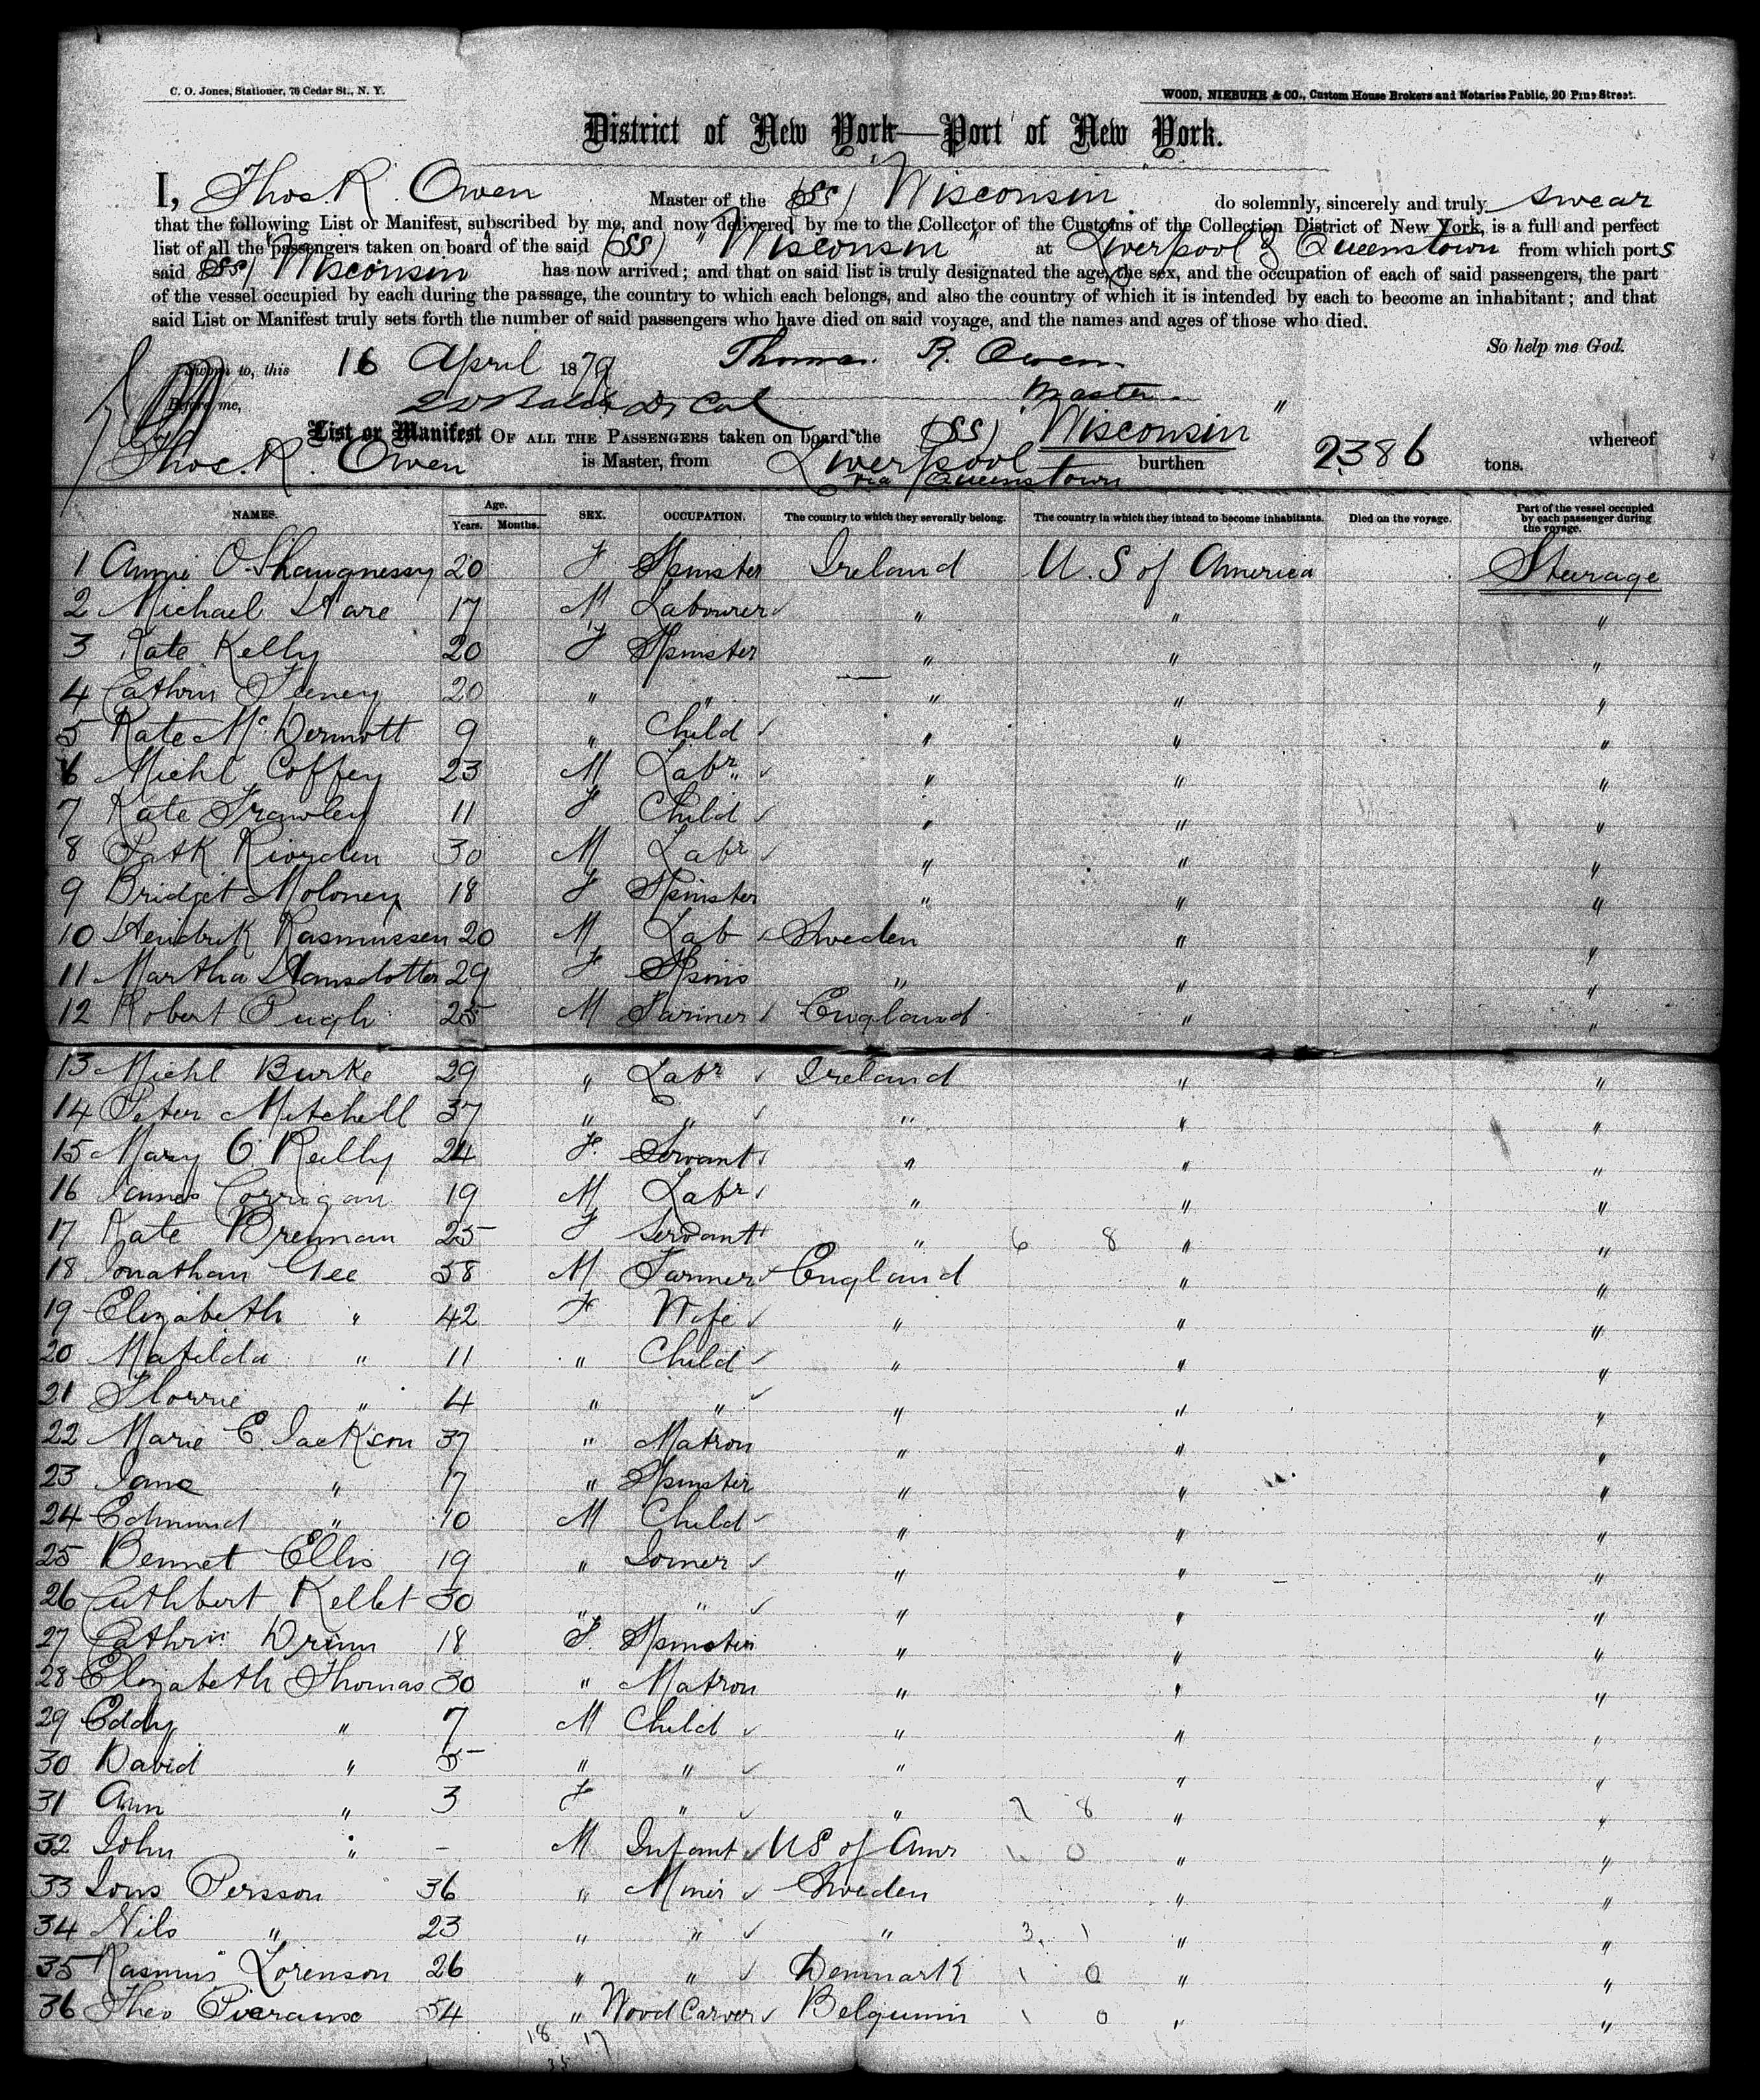 C. O. Jones, Stationer, 76 Cedar St., N. Y.
WOOD, NIEBUHR & CO., Custom House Brokers and Notaries Public, 20 Pine Street.
District of New York—Port of New York.
I, Thos. R. Owen Master of the (SS) Wisconsin do solemnly, sincerely and truly swear
that the following List or Manifest, subscribed by me, and now delivered by me to the Collector of the Customs of the Collection District of New York, is a full and perfect
list of all the passengers taken on board of the said (SS) "Wisconsin" at Liverpool & Queenstown from which ports
said (SS) Wisconsin has now arrived; and that on said list is truly designated the age, the sex, and the occupation of each of said passengers, the part
of the vessel occupied by each during the passage, the country to which each belongs, and also the country of which it is intended by each to become an inhabitant; and that
said List or Manifest truly sets forth the number of said passengers who have died on said voyage, and the names and ages of those who died.
So help me God.
Sworn to, this 16 April 1879 Thomas R. Owen
Before me, Master
List or Manifest OF ALL THE PASSENGERS taken on board the (SS) Wisconsin whereof
Thos. R. Owen is Master, from Liverpool burthen 2386 tons.
via Queenstown
NAMES. Age. Years. Months. SEX. OCCUPATION. The country to which they severally belong. The country in which they intend to become inhabitants. Died on the voyage. Part of the vessel occupied by each passenger during the voyage.
1 Annie O'Shaugnessy 20 F Spinster Ireland U. S of America Steurage
2 Michael Hare 17 M Labourer " " "
3 Kate Kelly 20 F Spinster " " "
4 Cathrin Feeney 20 " " " " "
5 Kate McDermott 9 " Child " " "
6 Michl Coffey 23 M Labr " " "
7 Kate Frawley 11 F Child " " "
8 Patk Riorden 30 M Labr " " "
9 Bridget Moloney 18 F Spinster " " "
10 Hendrik Rasmussen 20 M Lab Sweden " "
11 Martha Hansdotter 29 F Spins " " "
12 Robert Pugh 25 M Farmer England " "
13 Michl Burke 29 " Labr Ireland " "
14 Peter Mitchell 37 " " " " "
15 Mary O'Reilly 24 F. Servant " " "
16 James Corrigan 19 M Labr " " "
17 Kate Brennan 25 F Servant " 6 8 " "
18 Jonathan Gee 58 M Farmer England " "
19 Elizabeth " 42 F Wife " " "
20 Matilda " 11 " Child " " "
21 Florrie " 4 " " " " "
22 Marie E. Jackson 37 " Matron " " "
23 Jane " 17 " Spinster " " "
24 Edmund " 10 M Child " " "
25 Bennet Ellis 19 " Joiner " " "
26 Cuthbert Kellet 30 " " " " "
27 Cathrin 18 F. Spinster " " "
28 Elizabeth Thomas 30 " Matron " " "
29 Eddy " 7 M Child " " "
30 David " 5 " " " " "
31 Ann " 3 F " " 7 8 " "
32 John " - M Infant US of Amr 1 0 " "
33 Persson 36 " Miner Sweden " "
34 Nils " 23 " " " 3 1 " "
35 Rasmus Lorenson 26 " " Denmark 1 0 " "
36 Theo 54 " Wood Carver Belguim 1 0 " "
18 17
35